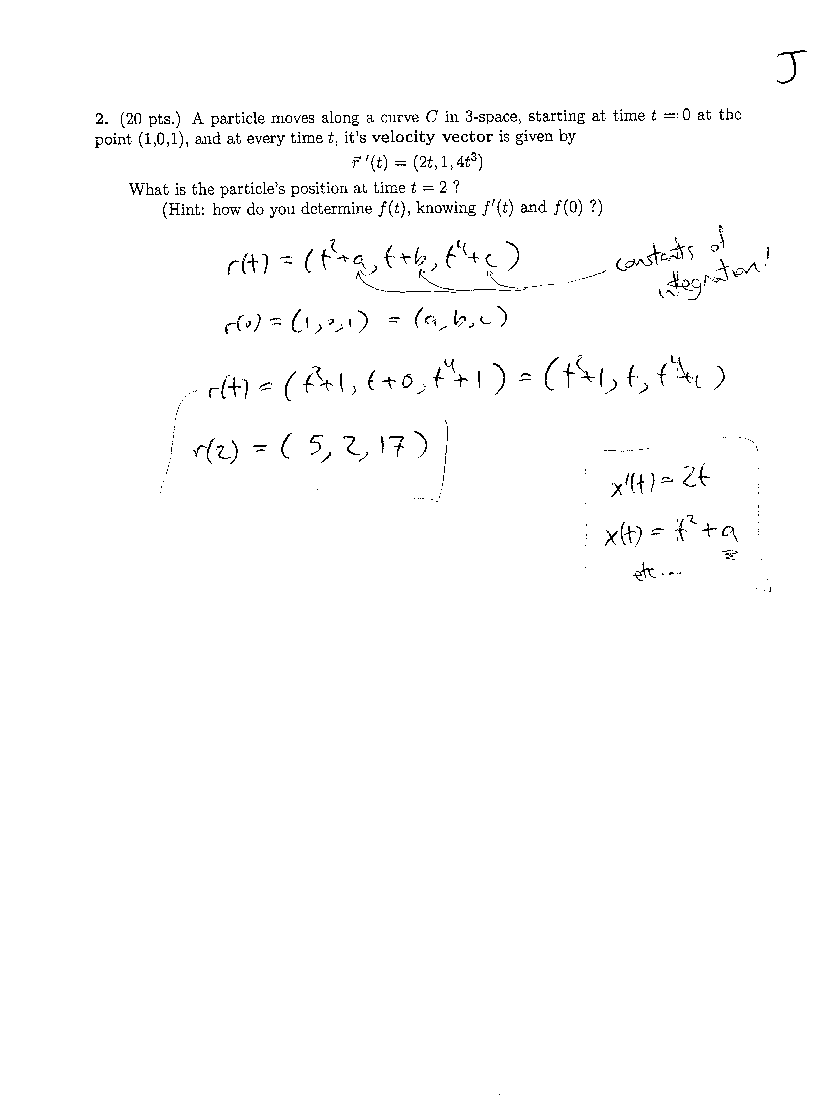 J
2. (20 pts.) A particle moves along a curve C in 3-space, starting at time t = 0 at the
point (1,0,1), and at every time t, it's velocity vector is given by
r⃗ ′(t) = (2t, 1, 4t³)
What is the particle's position at time t = 2 ?
(Hint: how do you determine f(t), knowing f′(t) and f(0) ?)
r(t) = (t²+a, t+b, t⁴+c) constants of
integration!
r(0) = (1,0,1) = (a,b,c)
r(t) = (t²+1, t+0, t⁴+1) = (t²+1, t, t⁴+1)
r(2) = (5, 2, 17)
x'(t) = 2t
x(t) = t² + a
etc...